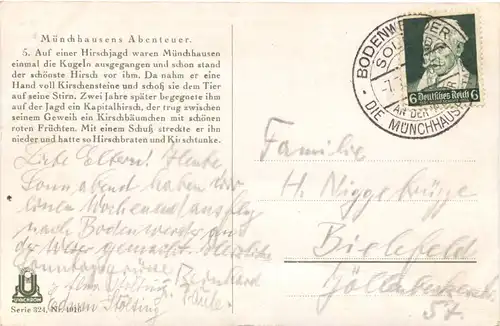 Münchhausens Abenteuer.
5. Auf einer Hirschjagd waren Münchhausen
einmal die Kugeln ausgegangen und schon stand
der schönste Hirsch vor ihm. Da nahm er eine
Hand voll Kirschensteine und schoß sie dem Tier
auf seine Stirn. Zwei Jahre später begegnete ihm
auf der Jagd ein Kapitalhirsch, der trug zwischen
seinem Geweih ein Kirschbäumchen mit schönen
roten Früchten. Mit einem Schuß streckte er ihn
nieder und hatte so Hirschbraten und Kirschtunke.
Liebe Eltern! Heute
Sonnabend haben wir
einen Wochenendausflug
nach Bodenwerder
der Weser gemacht. Herzliche
Sonntagsgrüsse Bernhard
Stölting
Serie 324, Nr. 4916
BODENWERDER
SOL
AN DER
DIE MÜNCHHAUS
6 Deutsches Reich 6
Familie
H. Niggebrügge
Bielefeld
57.